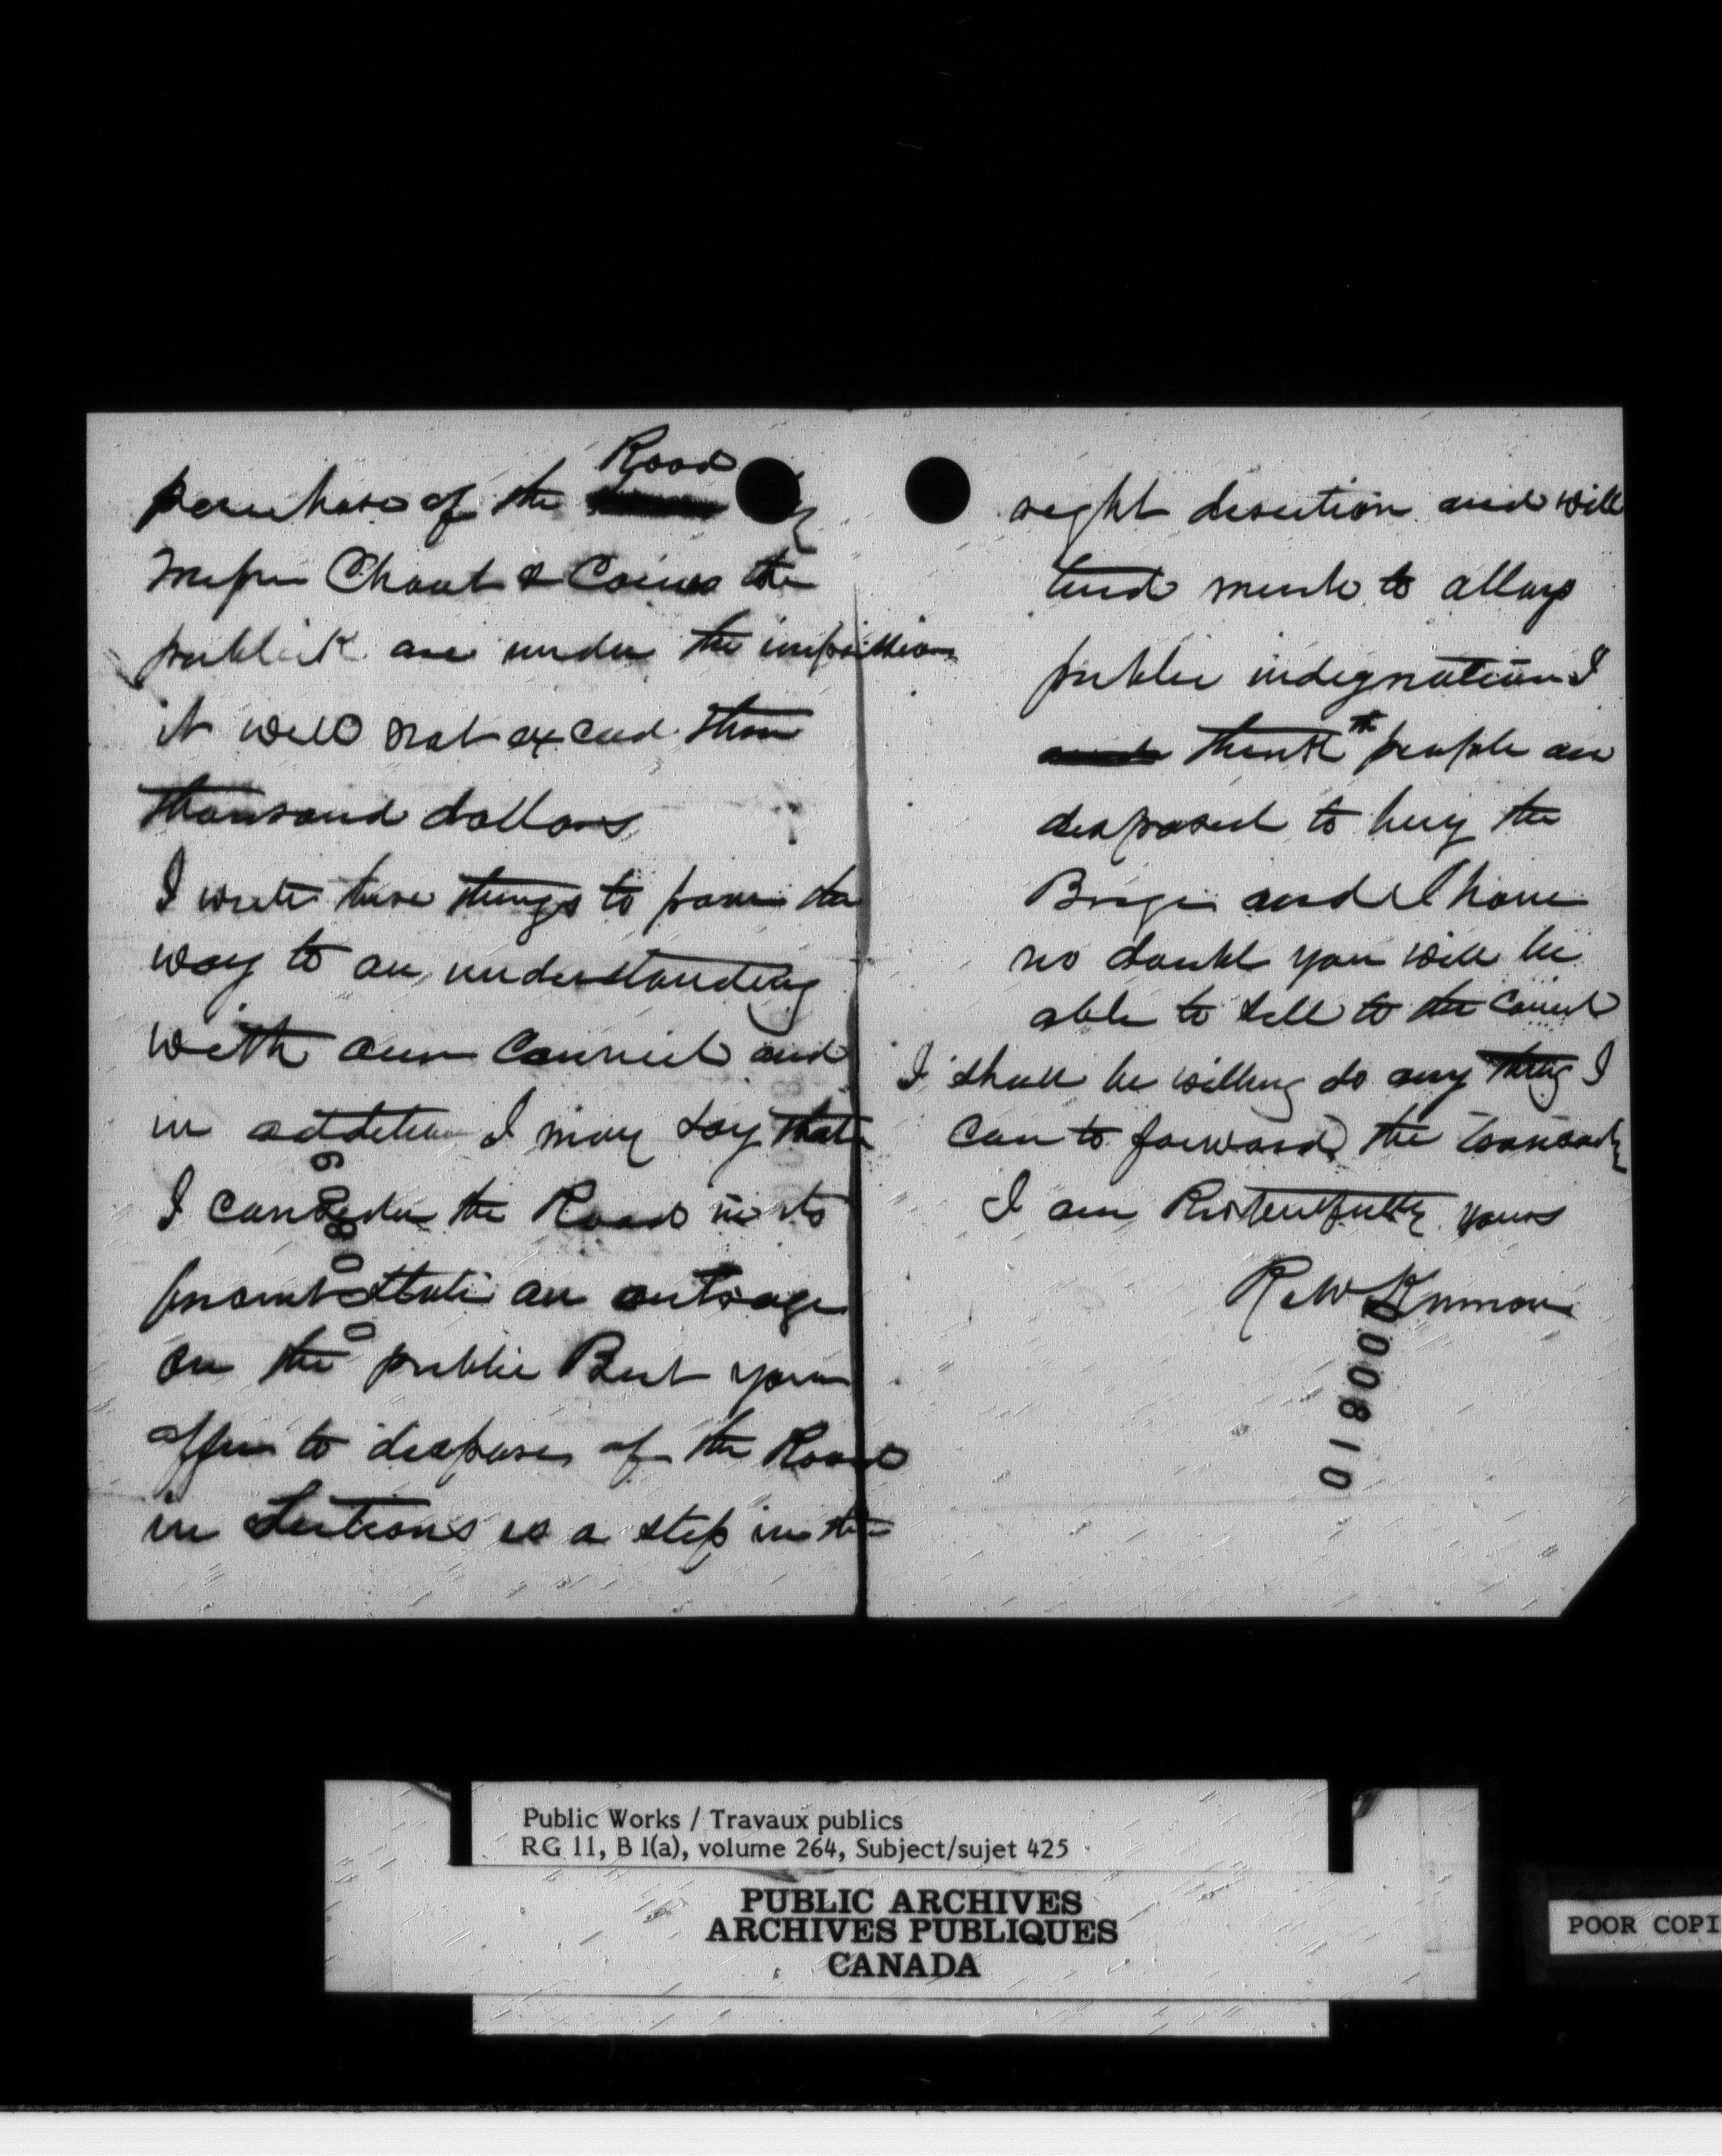 Road
purchase of the by
Messrs Choat & the
publick are under the impression
it will not exceed three
thousand dollars
I write these things to pave the
way to an understanding
with our Council and
in addition I may say that
I consider the Road in its
present state an outrage
on the public But your
offer to dispose of the Road
in Sections is a step in the
000809
right direction and will
tend much to allay
public indignation I
think the people are
disposed to buy the
and I have
no doubt you will be
able to sell to the Council
I shall be willing do any thing I
can to forward the
I am Respectfully yours
R W
000810
Public Works / Travaux publics
RG 11, B 1(a), volume 264, Subject/sujet 425
PUBLIC ARCHIVES
ARCHIVES PUBLIQUES
CANADA
POOR COPI